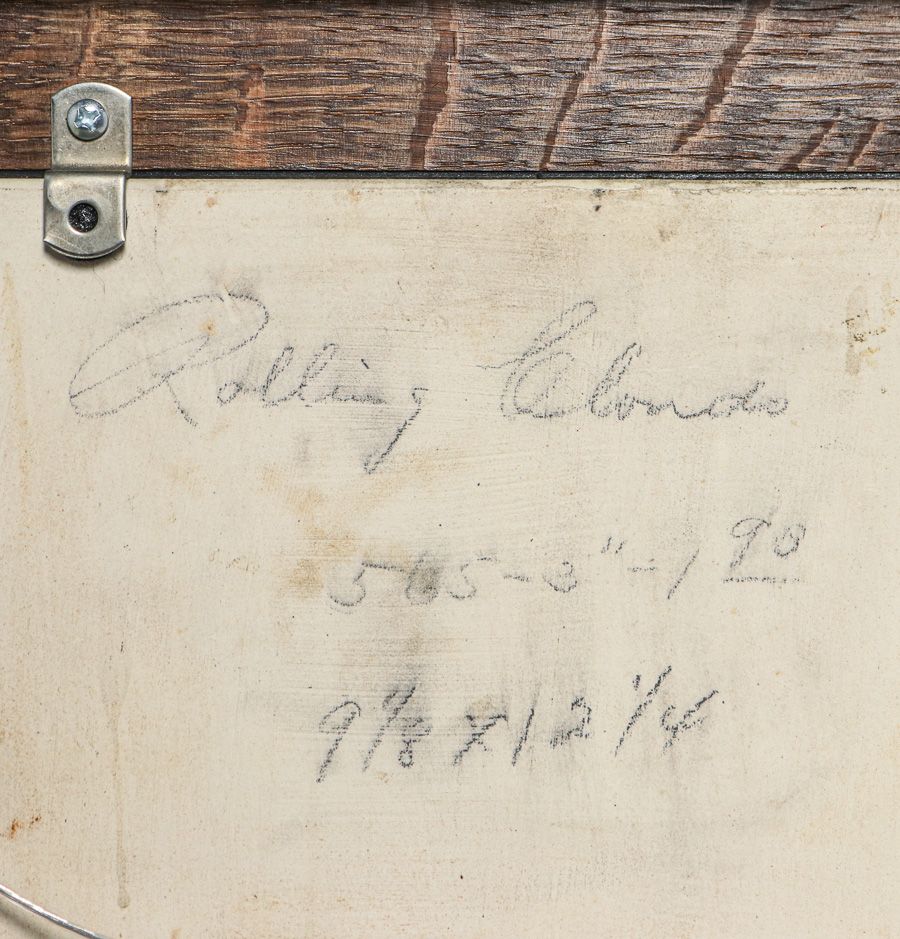 Rolling Clouds
505-3"-1 90
9 7/8 x 12 1/4